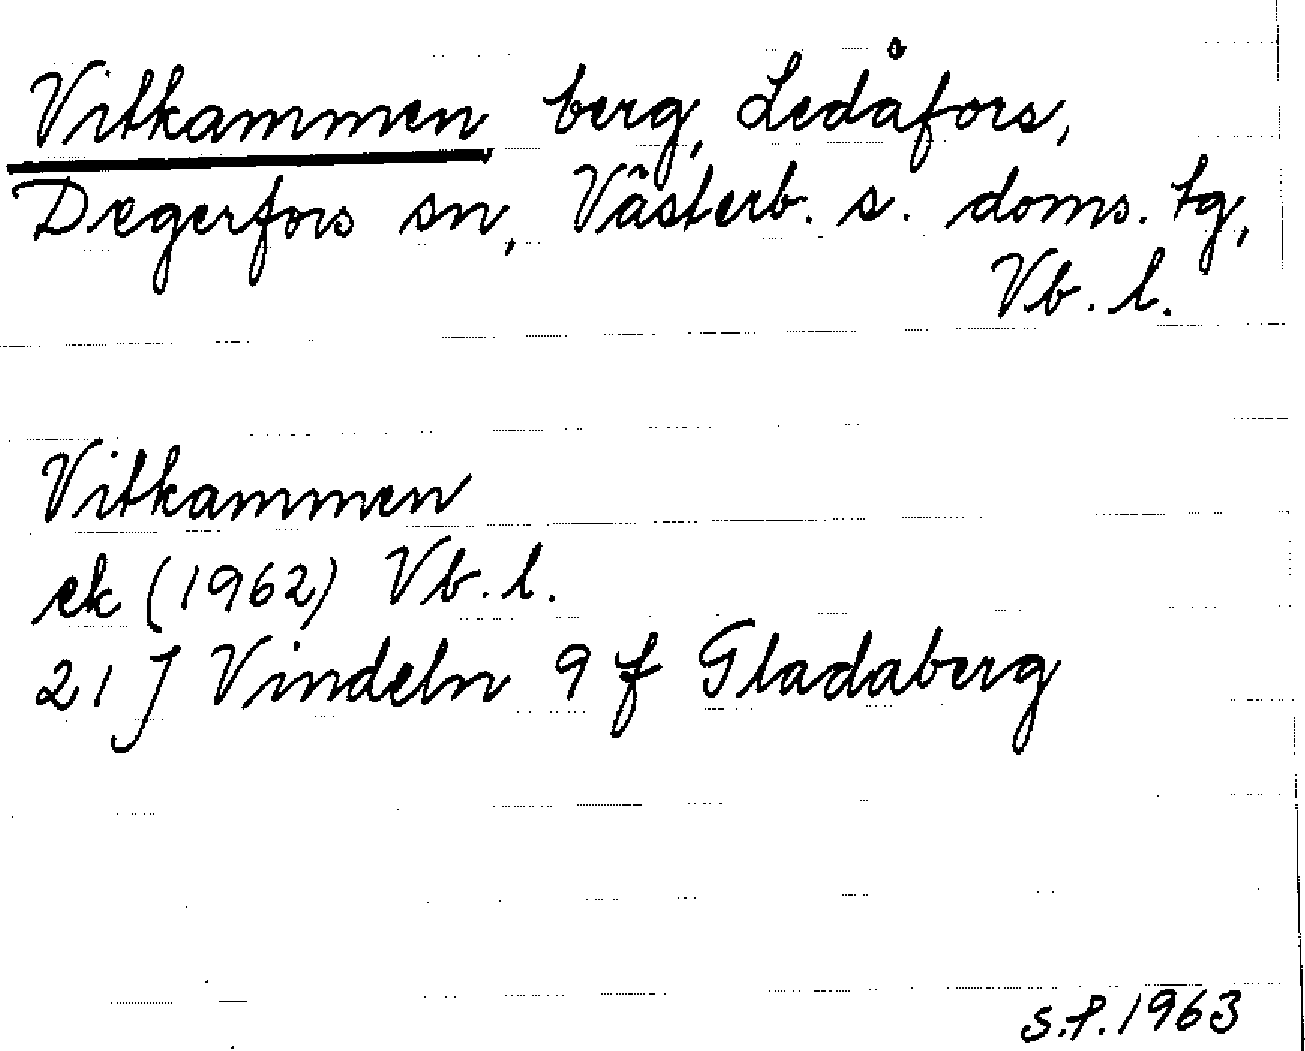 Vitkammen berg, Ledåfors,
Degerfors sn, Västerb. s. doms. tg,
Vb. l.
Vitkammen
ek (1962) Vb. l.
21 J Vindeln 9 f Gladaberg
S.P. 1963